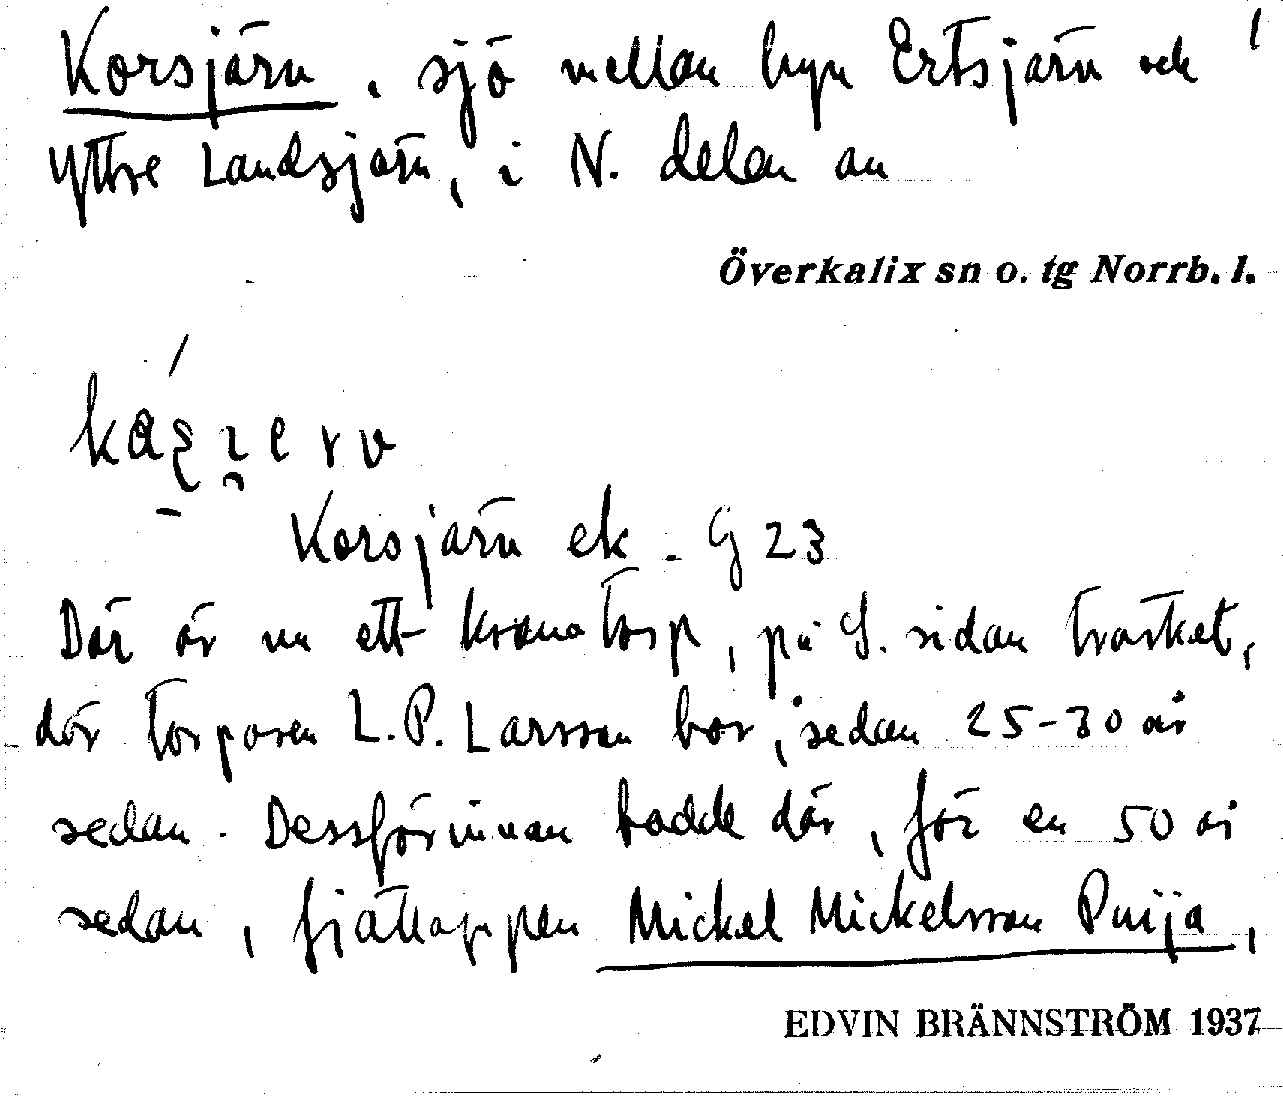 Korsjärv, sjö mellan byn Ertsjärv och
Yttre Landsjärv, i N. delen av
Överkalix sn o. tg Norrb. l.
Korsjärv ek. G 23
Där är nu ett kronotorp, på S. sidan träsket,
där torparen L.P. Larsson bor, sedan 25-30 år
sedan. Dessförinnan bodde där, för en 50 år
sedan, fjällappen Mickel Mickelsson Puija,
EDVIN BRÄNNSTRÖM 1937